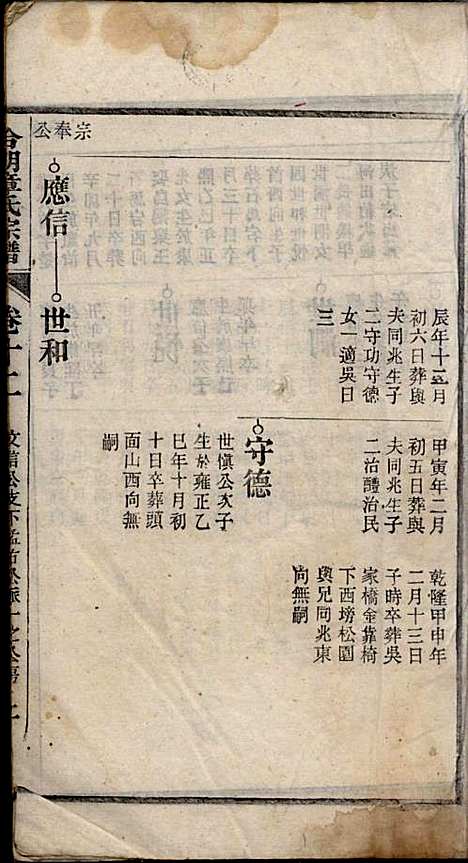 辰年十二月
初六日葬與
夫同兆生子
二守功守德
女一適吳日
三
甲寅年二月
初五日葬與
夫同兆生子
二治醴治民
乾隆甲申年
二月十三日
子時卒葬吳
家橋金靠椅
下西塝松園
與兄同兆東
向無嗣
守德
世愼公次子
生於雍正乙
巳年十月初
十日卒葬頭
面山西向無
嗣
宗奉公
應信
世和
章氏宗譜
卷十二